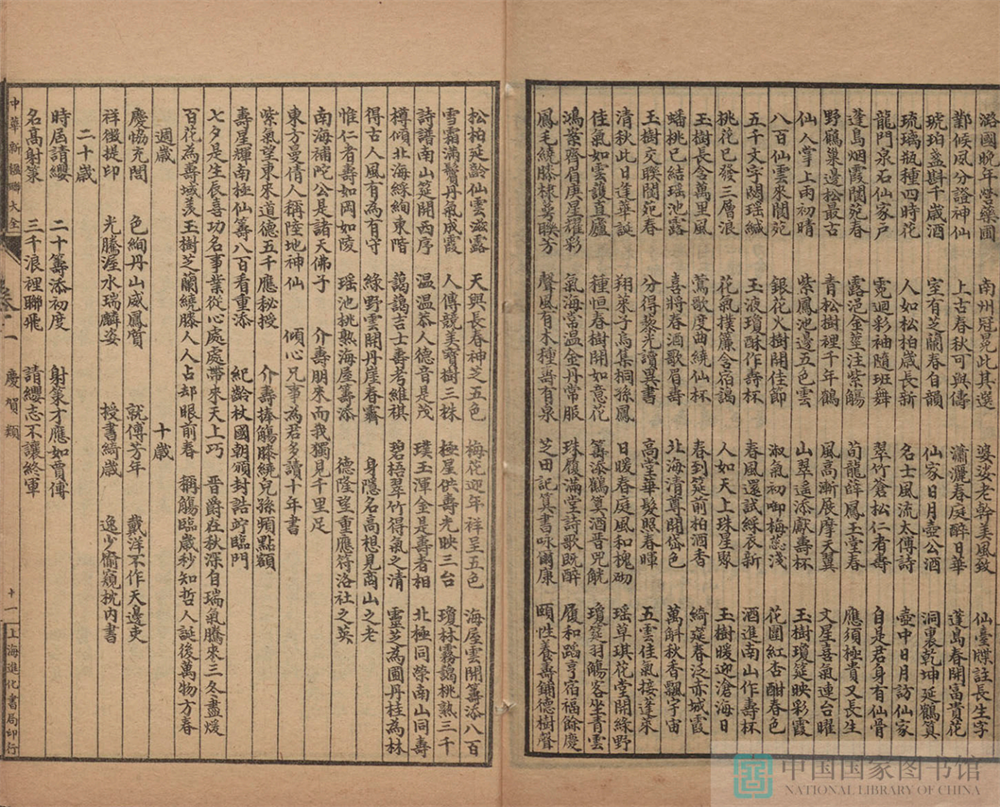 潞國晚年營藥圃 南州冠冕此其選 婆娑老幹美風致 仙臺牒註長生字
鄴候風分證神仙 上古春秋可與儔 瀟灑春庭醉日華 蓬萬春開富貴花
琥珀盞斟千歲酒 室有芝蘭春自韻 仙家日月壺公酒 洞裏乾坤延鶴算
琉璃瓶種四時花 人如松柏歲長新 名士風流太傅詩 壺中日月訪仙家
龍門泉石仙家戶 霓迴彩袖隨班舞 翠竹蒼松仁者壽 自是君身有仙骨
蓬島烟霞閬苑春 露浥金莖注紫觴 荀龍薛鳳玉堂春 應須極貴又長生
野鶴巢邊松最古 青松樹裡千年鶴 風高漸展摩天翼 文星喜氣連台曜
仙人掌上雨初晴 紫鳳池邊五色雲 山翠遥添獻壽杯 玉樹瓊筵映彩霞
八百仙雲來閬苑 銀花火樹開佳節 淑氣初啣梅蕊淺 花圃紅杏酣春色
五千文字閟瑶緘 玉液瓊酥作壽杯 春風還試綵衣新 酒進南山作壽杯
桃花已發三層浪 花氣撲簾含宿靄 人如天上珠星聚 玉樹暖迎滄海日
玉樹長含萬里風 鶯歌度曲繞仙杯 春到筵前柏酒香 綺筵春泛赤城霞
蟠桃已結瑶池露 喜將春酒歌眉壽 北海清尊開岱色 萬斛秋香飄宇宙
玉樹交聯閬苑春 分得黎光讀異書 高堂華髮照春暉 五雲佳氣接蓬萊
清秋此日逢華誕 翔萊子鳥集桐孫鳳 日暖春庭風和槐砌 瑶草琪花堂開綠野
佳氣如雲護直廬 種恒春樹開如意花 籌添鶴算酒晉兕觥 瓊筵羽觴客坐青雲
鴻案齊眉庚星耀彩 氣海常溫金丹常服 珠履滿堂詩歌既醉 履和蹈亨宿福餘慶
鳳毛繞膝棣萼聯芳 聲風有木種壽有泉 芝田記算書咏爾康 頤性養壽鋪德樹聲
松柏延齡仙雲滋露 天與長春神芝五色 梅花迎年祥呈五色 海屋雲開籌添八百
雪霜滿鬢丹氣成霞 人傳競美寶樹三株 極星供壽光映三台 瓊林霧靄桃熟三千
詩譜南山筵開西序 溫溫恭人德音是茂 璞玉渾金是壽者相 北極同榮南山同壽
樽傾北海綵絢東階 藹藹吉士壽考維祺 碧梧翠竹得氣之清 靈芝為圃丹桂為林
得古人風有為有守 綠野雲開丹崖春霽 身隱名高想見商山之老
惟仁者壽如岡如陵 瑶池桃熟海屋籌添 德隆望重應符洛社之英
南海補陀公是諸天佛子 介壽朋來而我獨見千里足
東方曼倩人稱陸地神仙 傾心兄事為君多讀十年書
紫氣堂東來道德五千應秘授 介壽捧觴膝繞兒孫頻點額
壽星輝南極仙籌八百看重添 紀齡杖國朝頒封誥竚臨門
七夕是生辰喜功名事業從心處處帶來天上巧 晋爵在秋深自瑞氣騰來三冬盡煖
百花為壽域羨玉樹芝蘭繞膝人人占却眼前春 稱觴臨歲秒知哲人誕後萬物方春
週歲 十歲
慶協充閭 色絢丹山威鳳質 就傅芳年 戴洋不作天邊吏
祥徵提印 光騰渥水瑞麟姿 授書綺歲 逸少偷窺枕內書
二十歲
時屆請纓 二十籌添初度 射策才應如賈傅
名高射策 三千浪裡聯飛 請纓志不讓終軍
中華新楹聯大全 卷十一 慶賀類 十一 上海進化書局印行
中国国家图书馆
NATIONAL LIBRARY OF CHINA